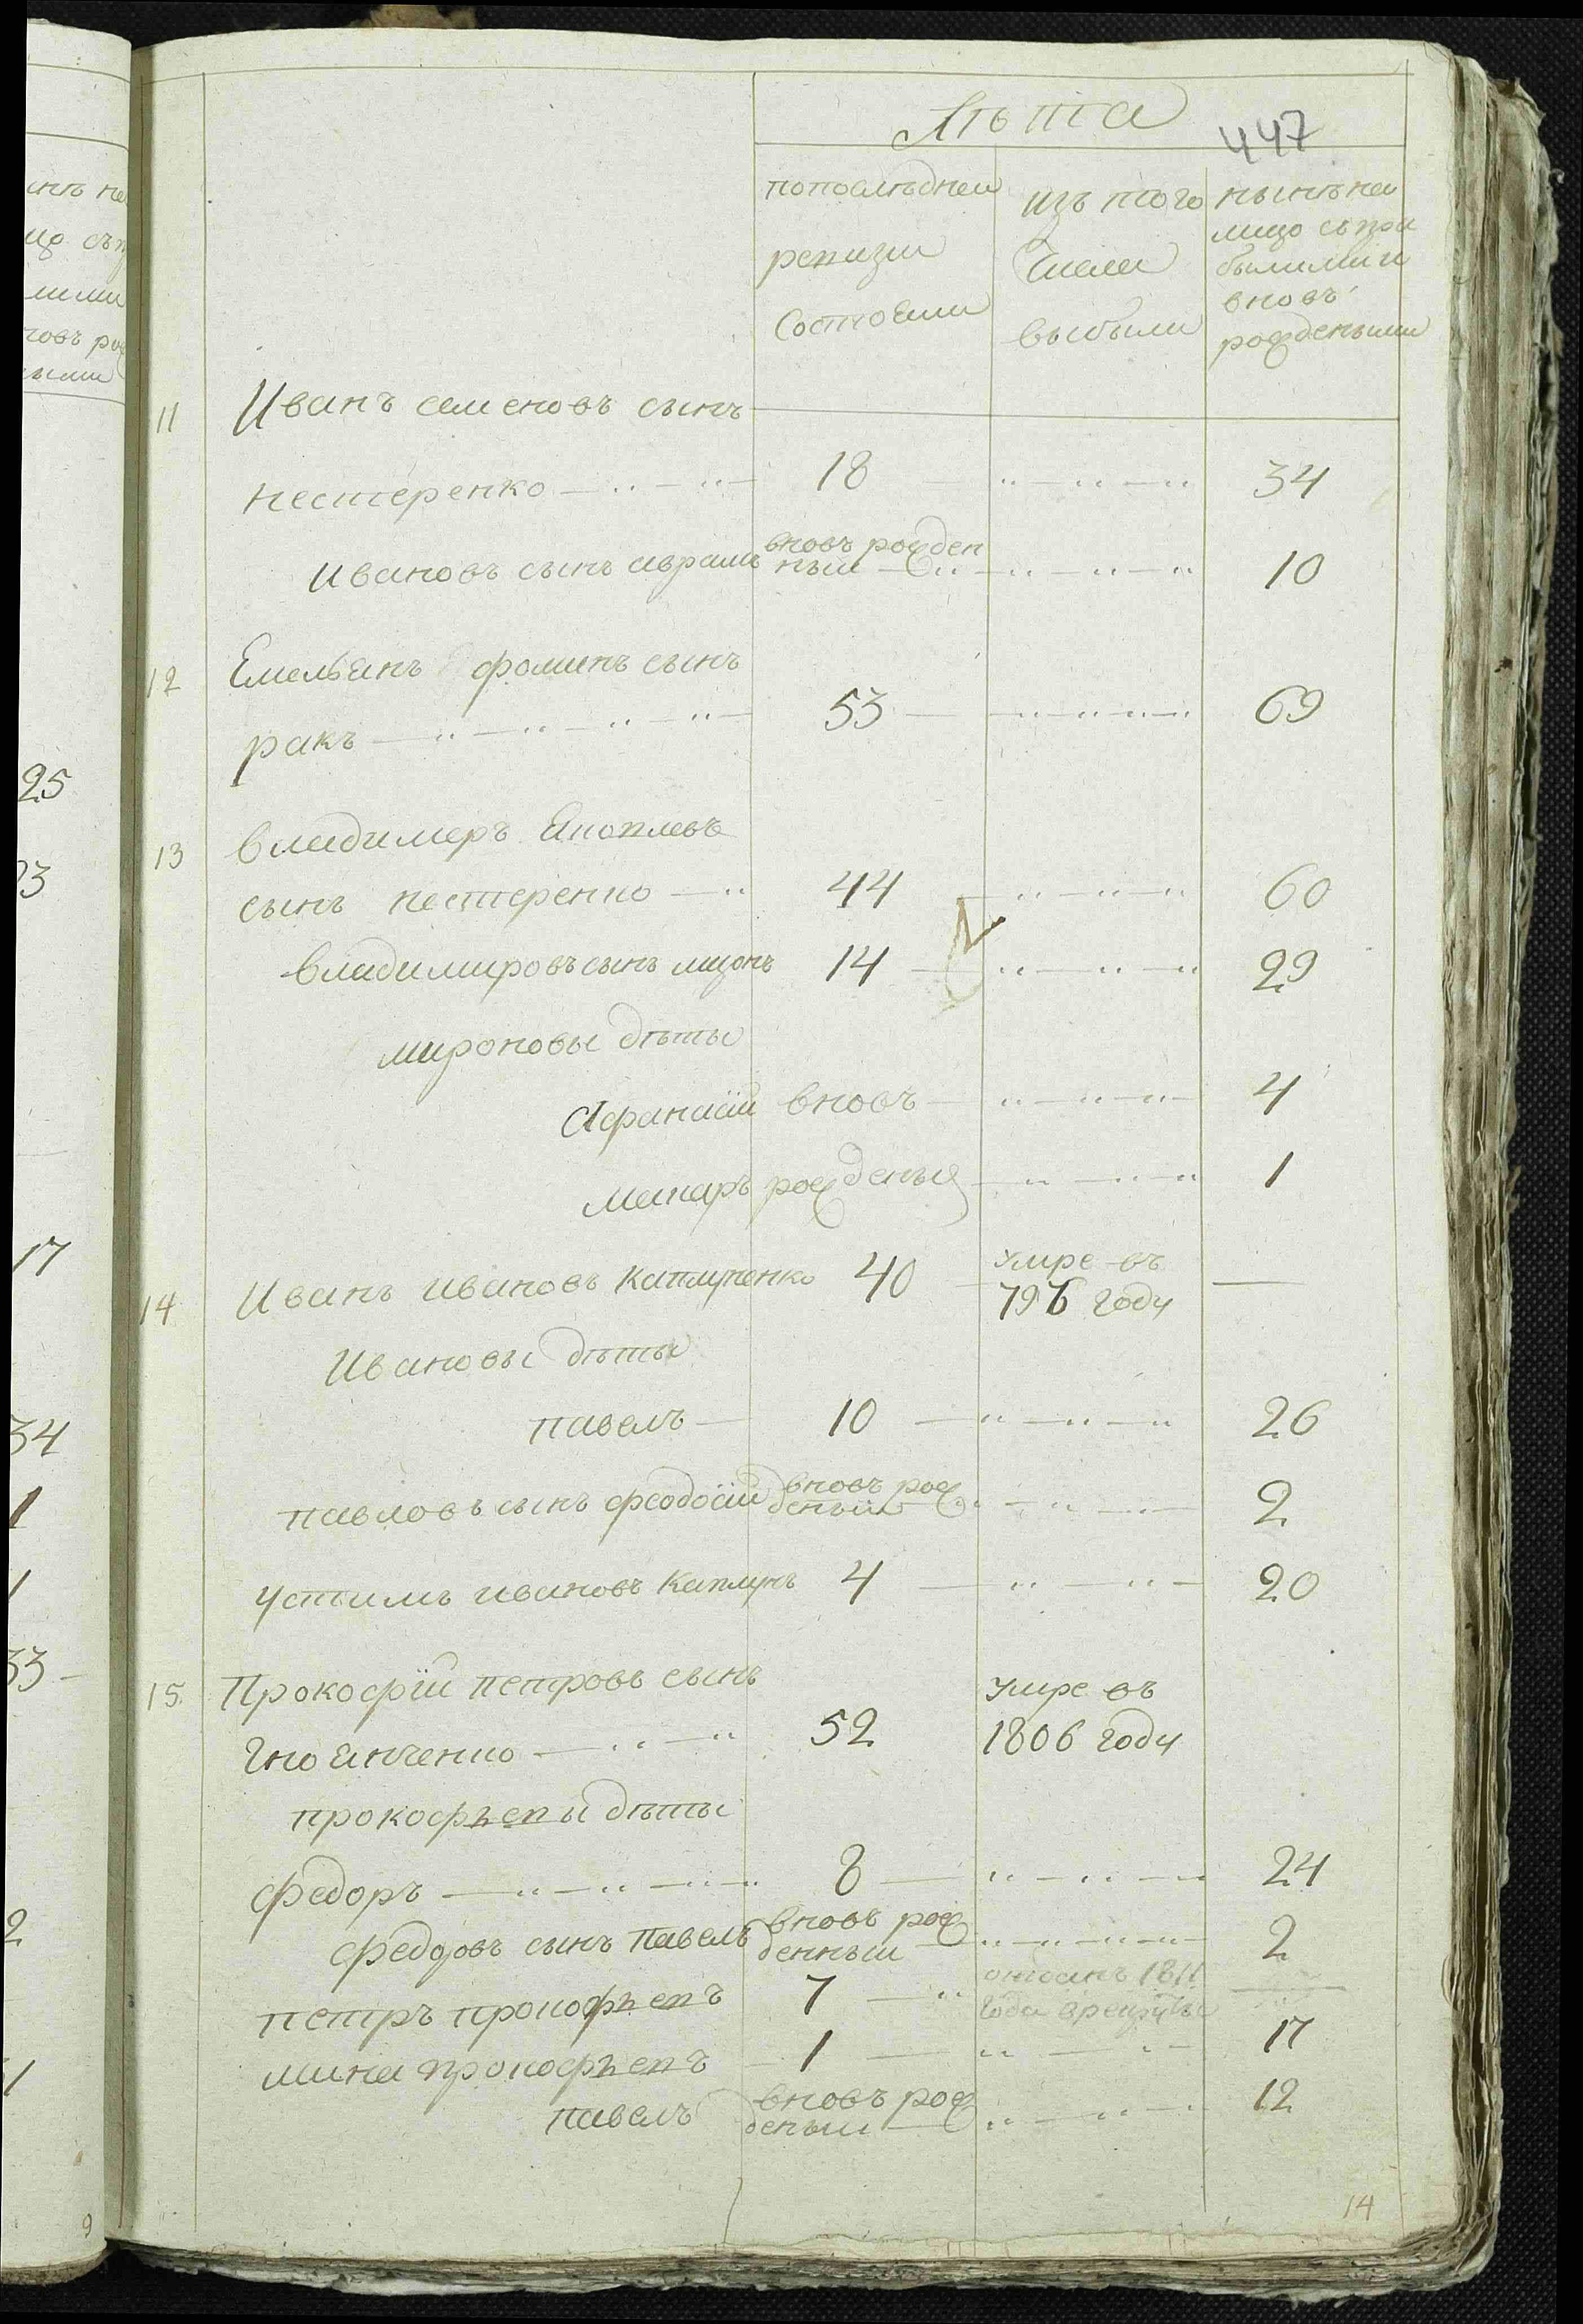 Лѣта
447
попослѣдней ревизіи состояли
изъ того числа выбыли
нынѣ на лицо съ при былими и вновь рожденыими
11 Иванъ семеновъ сынъ
нестеренко 18 34
Ивановъ сынъ аврамъ вновь рожден ный 10
12 Емельянъ фоминъ сынъ
ракъ 53 69
13 владимеръ Яковлевъ
сынъ нестеренко 44 60
владимировъ сынъ миронъ 14 29
мироновы дѣты
Афанасій вновь 4
макаръ рожденыя 1
14 Иванъ ивановъ каплуненко 40 умре въ 796 году
Ивановы дѣты
павелъ 10 26
павловъ сынъ феодосій вновь рож деный 2
устимъ ивановъ каплунъ 4 20
15 Прокофій петровъ сынъ
Гноянченко 52 умре въ 1806 году
прокофьевы дѣты
федоръ 8 24
федоровъ сынъ павелъ вновь рож денный 2
петръ прокофьевъ 7 отданъ 1811 года врекруты
мина прокофьевъ 1 17
павелъ вновь рож деный 12
14
25
17
34
1
1
33
2
9